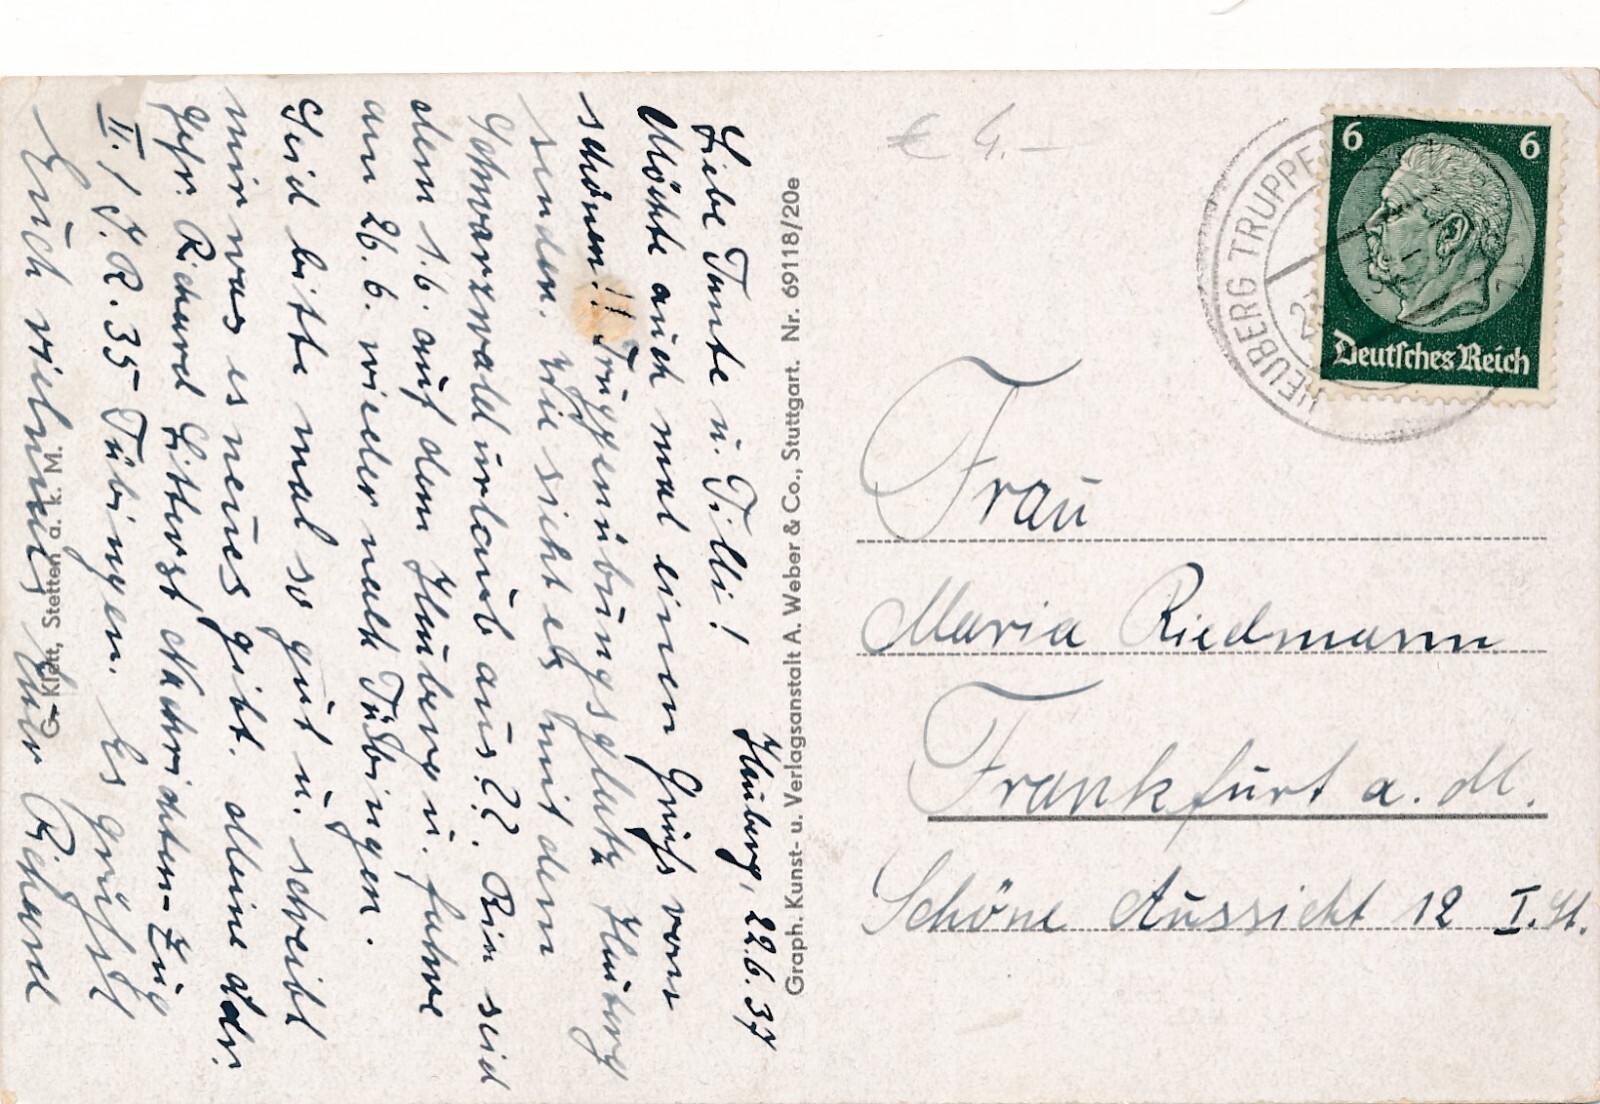 Heuberg, 22.6.37
Liebe Tante u. Tilli!
Möchte auch mal einen Gruß vom
schönen!! Truppenübungsplatz Heuberg
senden. Wie sieht es mit dem
Schwarzwaldurlaub aus?? Bin seid
dem 1.6. auf dem Heuberg u. fahre
am 26.6. wieder nach Tübingen.
Seid bitte mal so gut u. schreibt
mir was es neues gibt. Meine Adr.
Gefr. Richard Litterst Nachrichten-Zug
II./ J.R. 35 Tübingen. Es grüßt
Euch vielmals Euer Richard
G. Klett, Stetten a. k. M.
Graph. Kunst- u. Verlagsanstalt A. Weber & Co., Stuttgart. Nr. 69118/20e
€ 4.-
HEUBERG TRUPPE
6 6
Deutsches Reich
Frau
Maria Riedmann
Frankfurt a. M.
Schöne Aussicht 12 I. St.